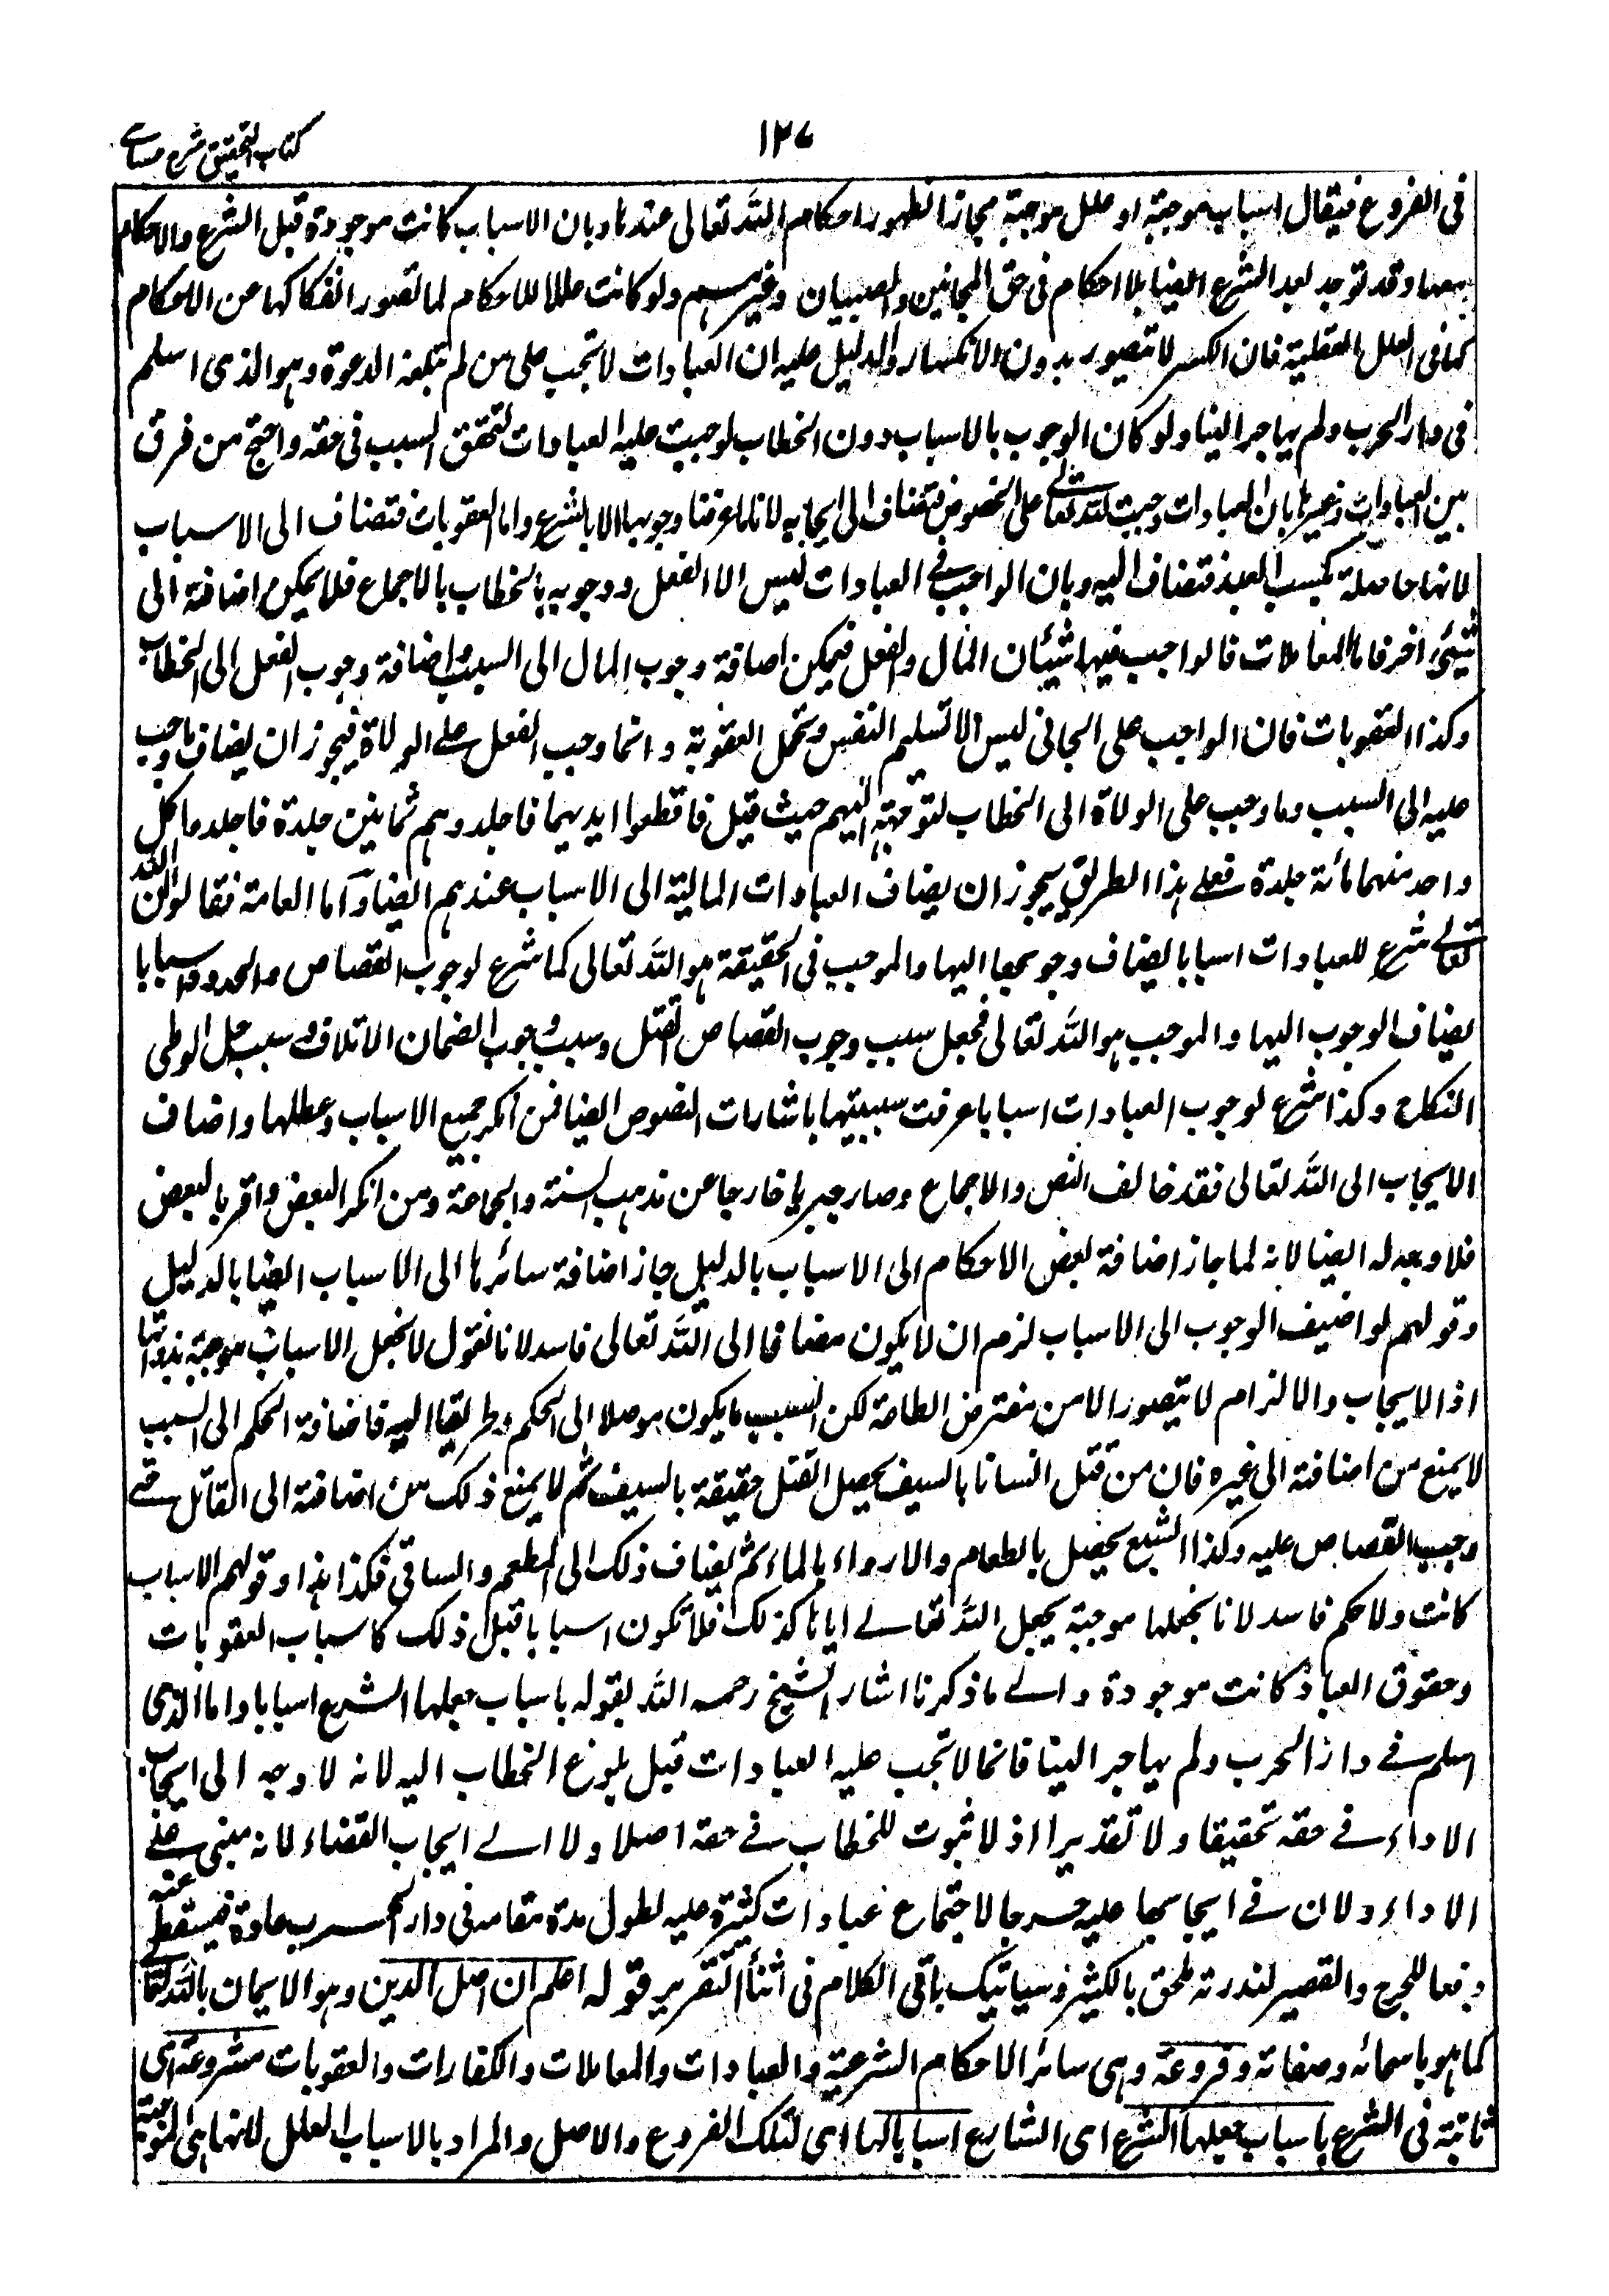 ١٢٧
كتاب التحقيق شرح حسامى
فى الفروع فيقال اسباب موجبة او علل موجبة مجازا لظهور احكام الله تعالى عندها وبان الاسباب كانت موجودة قبل الشرع والاحكام
معها وقد توجد بعد الشرع ايضا بلا احكام فى حق المجانين والصبيان وغيرهم ولو كانت عللا للاحكام لما تصور انفكاكها عن الاحكام
كما فى العلل العقلية فان الكسر لا تتصور بدون الانكسار والدليل عليه ان العبادات لا تجب على من لم تبلغه الدعوة وهو الذى اسلم
فى دار الحرب ولم يهاجر الينا ولو كان الوجوب بالاسباب دون الخطاب لوجبت عليه العبادات لتحقق السبب فى حقه واحتج من فرق
بين العبادات وغيرها بان العبادات وجبت لله تعالى على الخصوص فتضاف الى ايجابه لانا ما عرفنا وجوبها الا بالشرع واما العقوبات فتضاف الى الاسباب
لانها حاصلة بكسب العبد فتضاف اليه وبان الواجب فى العبادات ليس الا الفعل ووجوبه بالخطاب بالاجماع فلا يمكن اضافته الى
شيئ اخر فاما المعاملات فالواجب فيها شيئان المال والفعل فيمكن اضافة وجوب المال الى السبب واضافة وجوب الفعل الى الخطاب
وكذا العقوبات فان الواجب على الجانى ليس الا تسليم النفس وتحمل العقوبة وانما وجب الفعل على الولاة فيجوز ان يضاف ما وجب
عليه الى السبب وما وجب على الولاة الى الخطاب لتوجهه اليهم حيث قيل فاقطعوا ايديهما فاجلدوهم ثمانين جلدة فاجلدوا كل
واحد منهما مائة جلدة فعلى هذا الطريق يجوز ان يضاف العبادات المالية الى الاسباب عندهم ايضا واما العامة فقالوا ان الله
تعالى شرع للعبادات اسبابا يضاف وجوبها اليها والموجب فى الحقيقة هو الله تعالى كما شرع لوجوب القصاص والحدود اسبابا
يضاف الوجوب اليها والموجب هو الله تعالى فجعل سبب وجوب القصاص القتل وسبب وجوب الضمان الاتلاف وسبب حل الوطى
النكاح وكذا شرع لوجوب العبادات اسبابا عرفت سببيتها باشارات النصوص ايضا فمن انكر جميع الاسباب وعطلها واضاف
الايجاب الى الله تعالى فقد خالف النص والاجماع وصار جبريا خارجا عن مذهب السنة والجماعة ومن انكر البعض واقر بالبعض
فلا وجه له ايضا لانه لما جاز اضافة بعض الاحكام الى الاسباب بالدليل جاز اضافة سائرها الى الاسباب ايضا بالدليل
وقولهم لو اضيف الوجوب الى الاسباب لزم ان لا يكون مضافا الى الله تعالى فاسد لانا نقول لا نجعل الاسباب موجبة بذواتها
اذ الايجاب والالزام لا يتصور الا من مفترض الطاعة لكن السبب ما يكون موصلا الى الحكم وطريقا اليه فاضافة الحكم الى السبب
لا يمنع من اضافته الى غيره فان من قتل انسانا بالسيف يحصل القتل حقيقة بالسيف ثم لا يمنع ذلك من اضافته الى القاتل حتى
وجب القصاص عليه وكذا الشبع يحصل بالطعام والارواء بالماء ثم يضاف ذلك الى المطعم والساقى فكذا هذا وقولهم الاسباب
كانت ولا حكم فاسد لانا نجعلها موجبة بجعل الله تعالى اياها كذلك فلا تكون اسبابا قبل ذلك كاسباب العقوبات
وحقوق العباد كانت موجودة والى ما ذكرنا اشار الشيخ رحمه الله بقوله باسباب جعلها الشرع اسبابا واما الذى
اسلم فى دار الحرب ولم يهاجر الينا فانما لا تجب عليه العبادات قبل بلوغ الخطاب اليه لانه لا وجه الى ايجاب
الاداء فى حقه تحقيقا ولا تقديرا اذ لا ثبوت للخطاب فى حقه اصلا ولا الى ايجاب القضاء لانه مبنى على
الاداء ولان فى ايجابها عليه حرجا لاجتماع عبادات كثيرة عليه لطول مدة مقامه فى دار الحرب عادة فيسقط عنه
دفعا للحرج والقصير لندرته ملحق بالكثير وسياتيك باقى الكلام فى اثناء التقرير قوله اعلم ان اصل الدين وهو الايمان بالله تعالى
كما هو باسمائه وصفاته وفروعه وهى سائر الاحكام الشرعية والعبادات والمعاملات والكفارات والعقوبات مشروعة اى
ثابتة فى الشرع باسباب جعلها الشرع اى الشارع اسبابا لها اى لتلك الفروع والاصل والمراد بالاسباب العلل لانها هى الموجبة